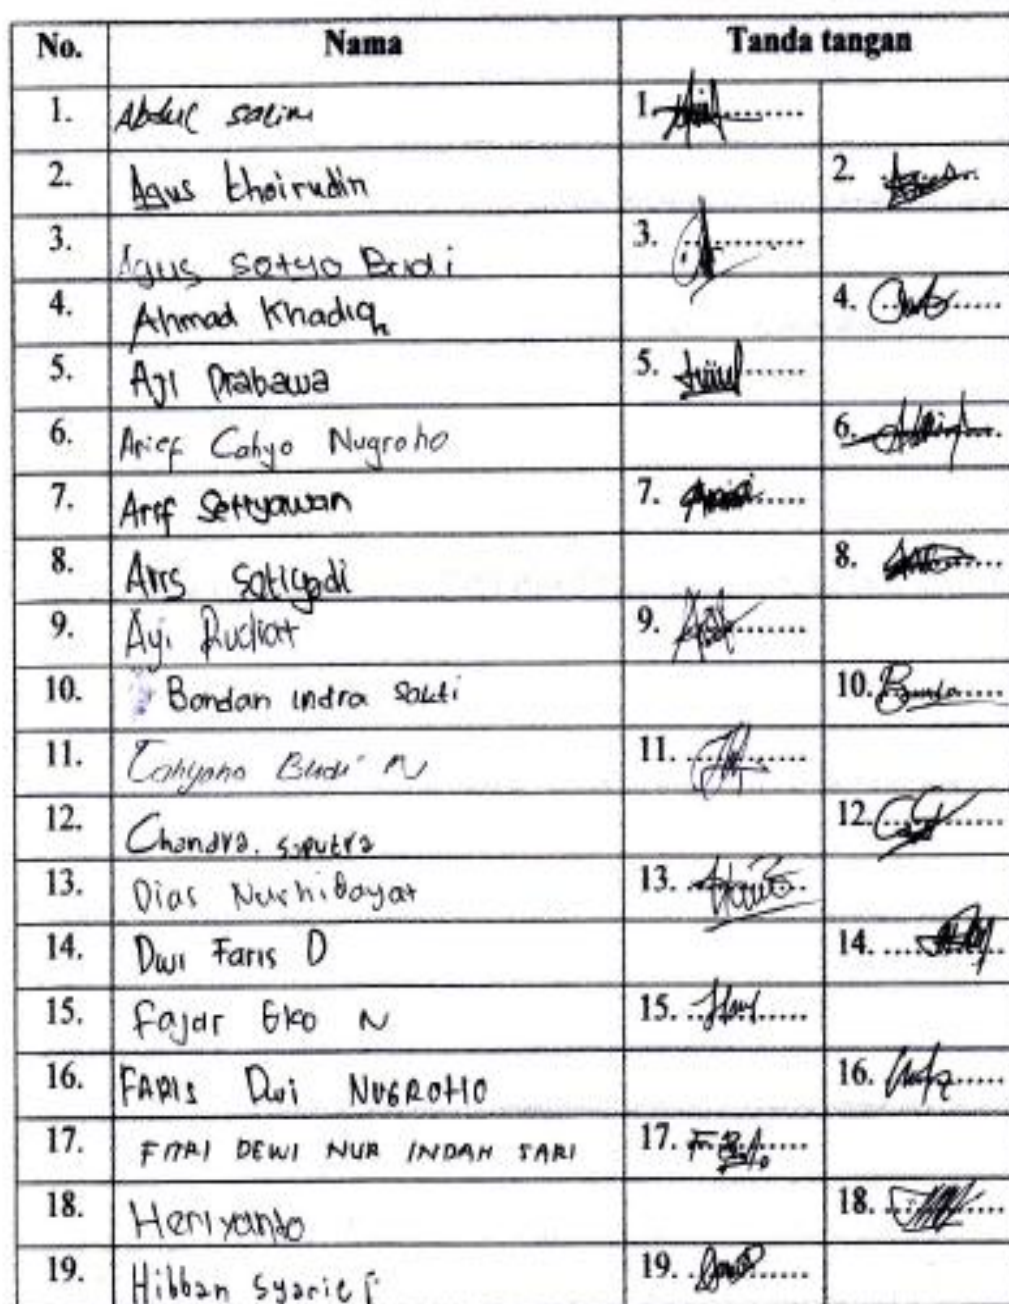 No. Nama Tanda tangan
1. Abdul Salim 1.
2. Agus Khoirudin 2.
3. Agus Setyo Budi 3.
4. Ahmad Khadiq 4.
5. Aji Prabawa 5.
6. Arief Cahyo Nugroho 6.
7. Arif Settyawan 7.
8. Aris Setiyadi 8.
9. Ayi Rudiat 9.
10. Bondan indra Sakti 10.
11. Cahyono Budi N 11.
12. Chandra. saputra 12.
13. Dias Nurhidayat 13.
14. Dwi Faris D 14.
15. Fajar Eko N 15.
16. FARIS Dwi NUGROHO 16.
17. FITRI DEWI NUR INDAH SARI 17.
18. Heriyanto 18.
19. Hibban Syarief 19.